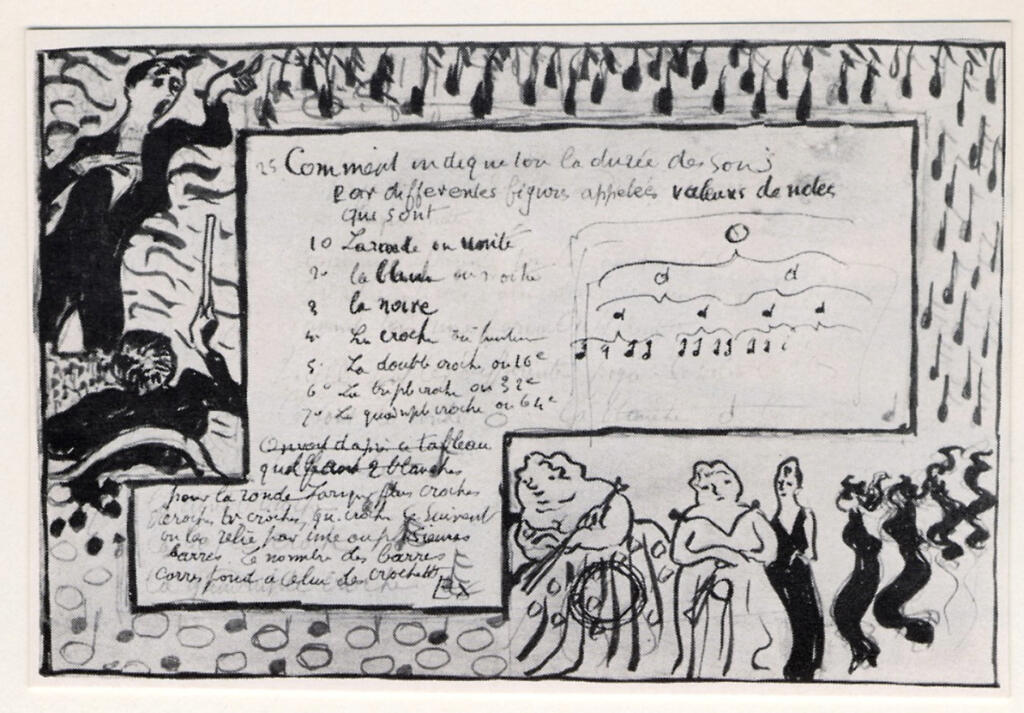 25 Comment indique ton la durée des sons
Par differentes figures appelées valeurs de notes
qui sont
10 La ronde ou unité
2° la blanche ou
3 la noire
4° La croche ou
5° La double croche ou 16e
6° La triple croche ou 32e
7° La quadruple croche ou 64e
On voit d'apres ce tableau
qu'il faut 2 blanches
pour la ronde Lorsque plus croches
croches, qu. croche se suivent
on les relie par une ou plusieurs
barres Le nombre des barres
correspond a celui des crochets
Ex